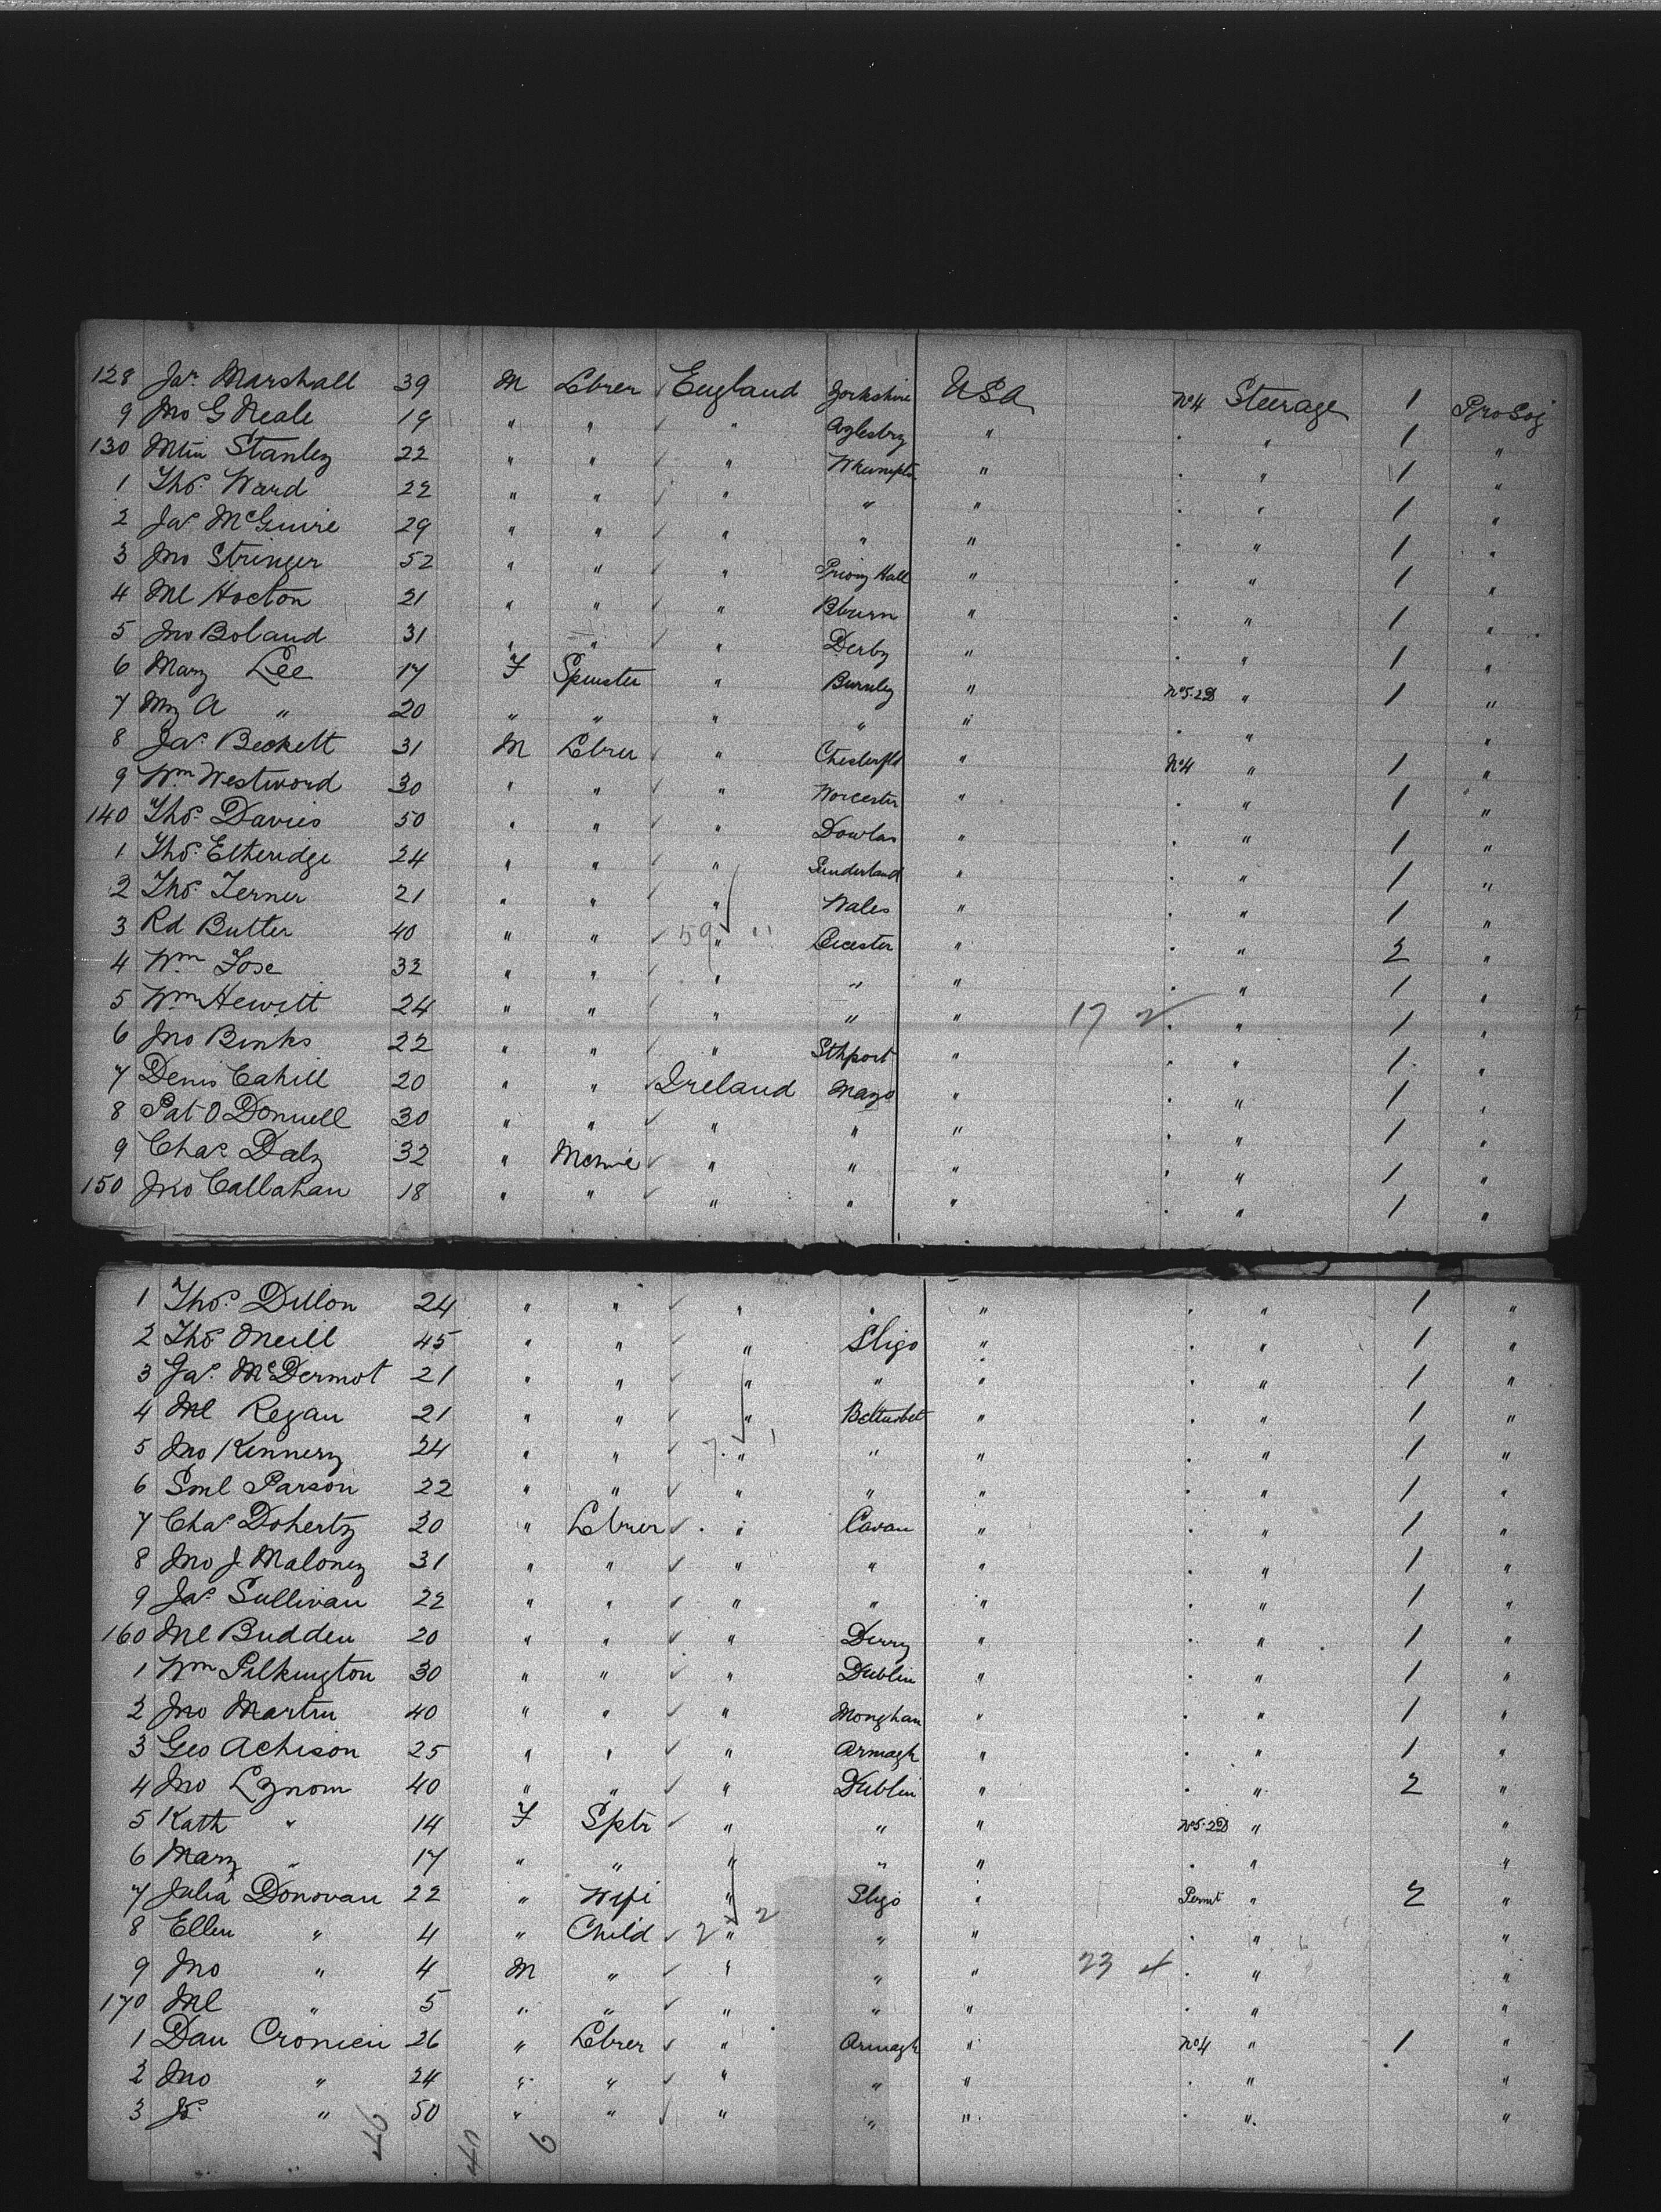 128 Jas. Marshall 39 M Lbrer England Yorkshire USA No4 Steerage 1 Pro Soj
9 Jno G Neale 19 " " " Aylesbry " . " 1 "
130 Mtin Stanley 22 " " " Whampton " . " 1 "
1 Thos. Ward 22 " " " " " . " 1 "
2 Jas McGuire 29 " " " " " . " 1 "
3 Jno Stringer 52 " " " Priory Hall " . " 1 "
4 Ml Hocton 21 " " " Bburn " . " 1 "
5 Jno Boland 31 " " " Derby " . " 1 "
6 Mary Lee 17 F Spinster " Burnley " No5.2D " 1 "
7 My A " 20 " " " " " . " "
8 Jas. Beckett 31 M Lbrer " Chesterfld " No4 " 1 "
9 Wm Westword 30 " " " Worcester " . " 1 "
140 Thos. Davies 50 " " " Dowlas " . " 1 "
1 Thos. Etheridge 24 " " " Sunderland " . " 1 "
2 Thos. Terner 21 " " " Wales " . " 1 "
3 Rd Butter 40 " " 59 " 11 Leicester " . " 2 "
4 Wm Fose 32 " " " " " . " 1 "
5 Wm Hewitt 24 " " " " " 17 2 . " 1 "
6 Jno Binks 22 " " " Sthport " . " 1 "
7 Denis Cahill 20 " " Ireland Mayo " . " 1 "
8 Pat O Donnell 30 " " " " " . " 1 "
9 Chas. Daly 32 " " " " . " 1 "
150 Jno Callahan 18 " " " " " . " 1 "
1 Thos. Dillon 24 " " " " " . " 1 "
2 Thos Oneill 45 " " " Sligo " . " 1 "
3 Jas. McDermot 21 " " " " " . " 1 "
4 Ml Regan 21 " " " Belturbet " . " 1 "
5 Jno Kennery 24 " " 7 " 1 " " . " 1 "
6 Sml Parson 22 " " " " " . " 1 "
7 Chas. Doherty 30 " Lbrer " Cavan " . " 1 "
8 Jno J. Maloney 31 " " " " " . " 1 "
9 Jas. Sullivan 22 " " " " " . " 1 "
160 Ml Budden 20 " " " Derry " . " 1 "
1 Wm Pilkington 30 " " " Dublin " . " 1 "
2 Jno Martin 40 " " " Monghan " . " 1 "
3 Geo Achison 25 " " " Armagh " . " 1 "
4 Jno Lynom 40 " " " Dublin " . " 2 "
5 Kath " 14 F Sptr " " " No5.2D " "
6 Mary " 17 " " " " " . " "
7 Julia Donovan 22 " Wife " Sligo " Permt " 2 "
8 Ellen " 4 " Child 2 " 2 " " . " "
9 Jno " 4 M " " " " 23 4 . " "
170 Ml " 5 " " " " " . " "
1 Dan Cronien 26 " Lbrer " Armagh " No4 " 1 "
2 Jno " 24 " " " " " . " "
3 " 50 " " " " " . " "
46 40 6